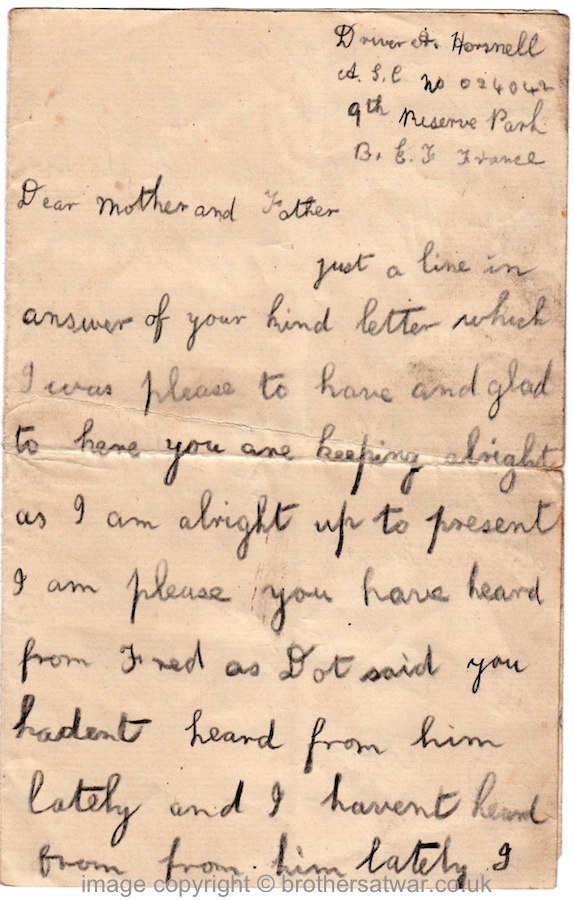 Driver A. Horsnell
A. S. C no 024042
9th Reserve Park
B. E. F France
Dear Mother and Father
just a line in
answer of your kind letter which
I was please to have and glad
to here you are keeping alright
as I am alright up to present
I am please you have heard
from Fred as Dot said you
hadent heard from him
lately and I havent heard
from from him lately I
image copyright © brothersatwar.co.uk